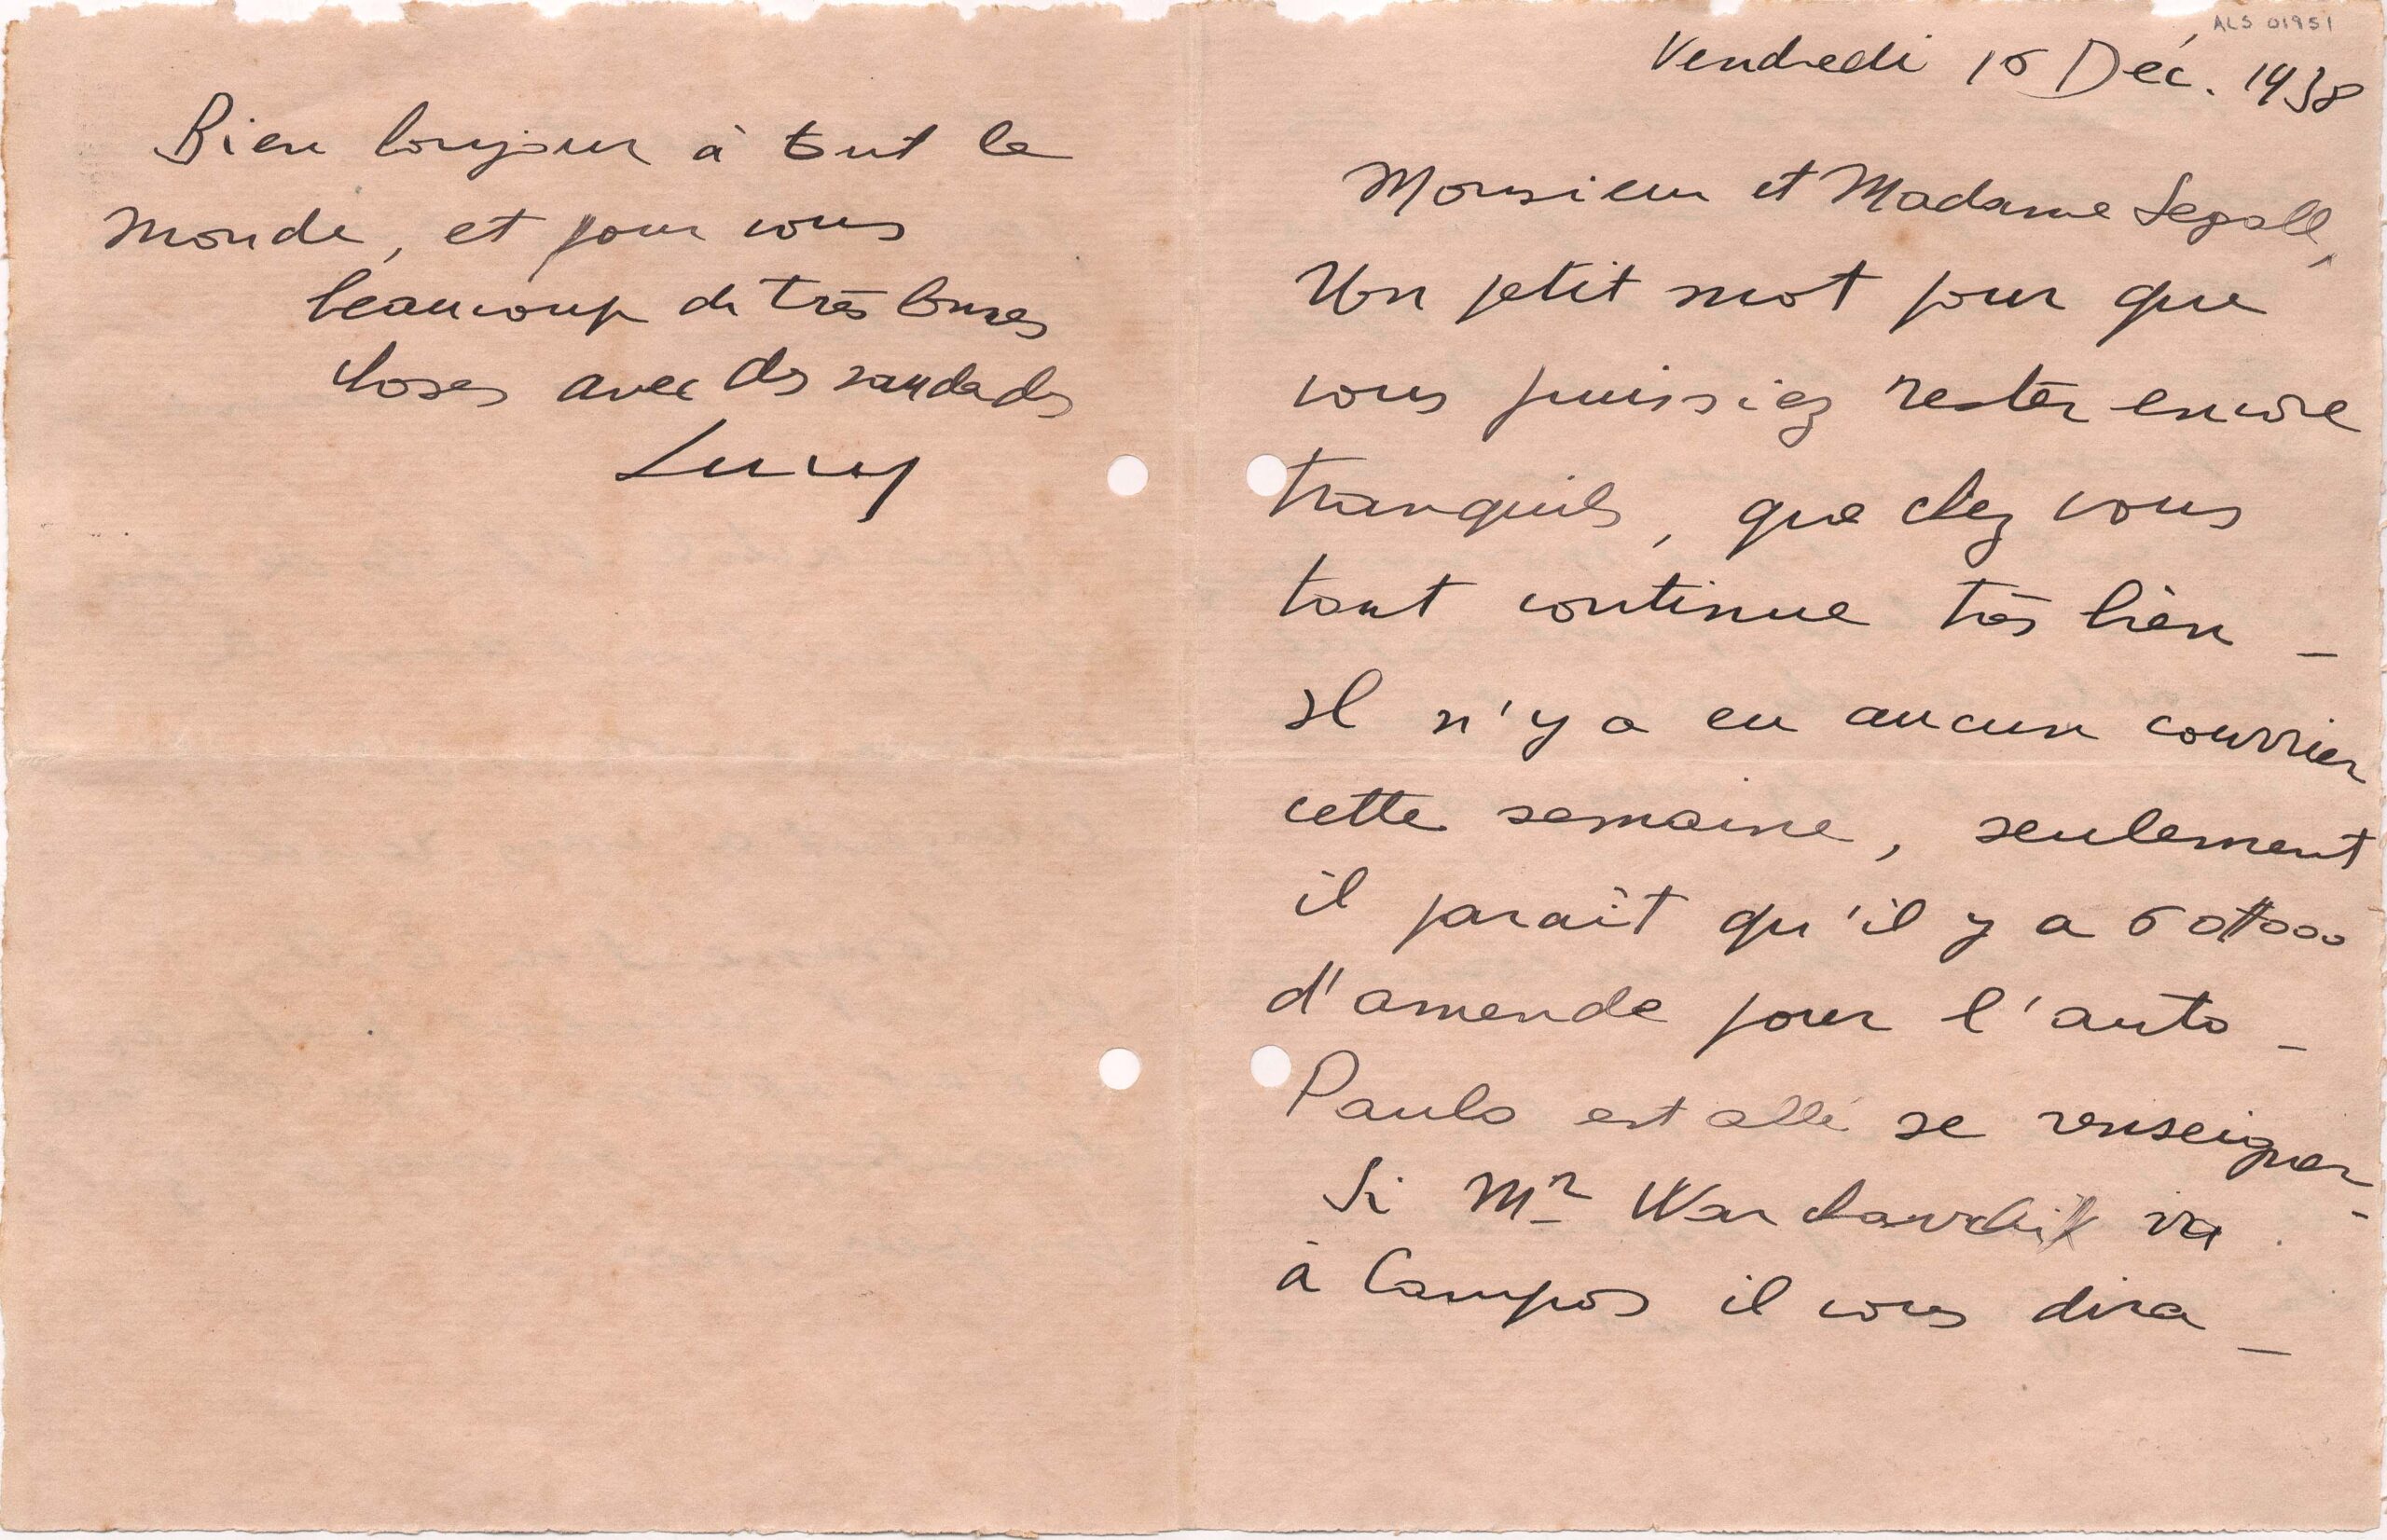 ALS 01951
Vendredi 16 Déc. 1938
Monsieur et Madame Segall,
Un petit mot pour que
vous puissiez rester encore
tranquils, que chez vous
tout continue très bien _
Il n'y a eu aucun courrier
cette semaine, seulement
il parait qu'il y a 60$000
d'amende pour l'auto _
Paulo est allé se renseigner _
Si Mr Warchavchik va
à Campos il vous dira _
Bien bonjour à tout le
monde, et pour vous
beaucoup de très bonnes
choses avec des saudades
Lucy